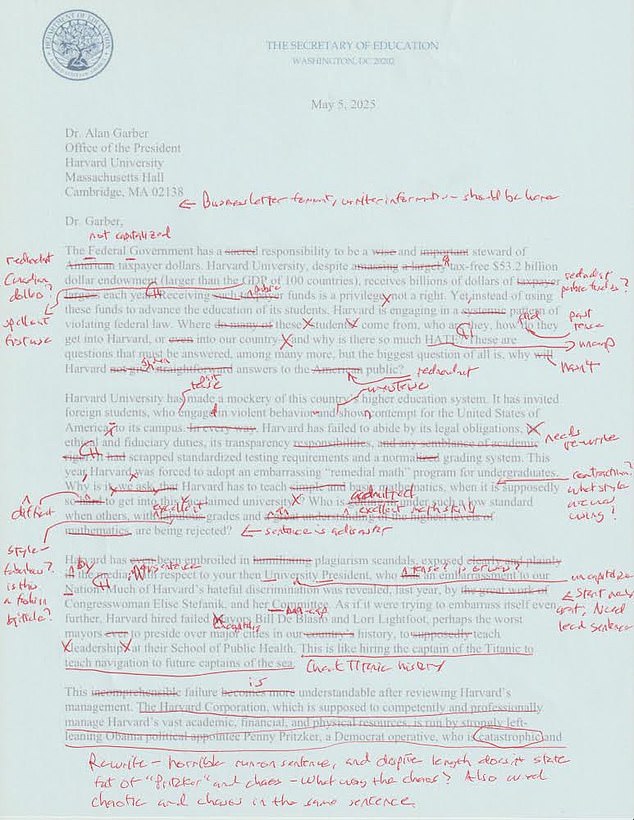 THE SECRETARY OF EDUCATION
WASHINGTON, DC 20202
May 5, 2025
Dr. Alan Garber
Office of the President
Harvard University
Massachusetts Hall
Cambridge, MA 02138
← Business letter format, writer information should be here
Dr. Garber,
not capitalized
The Federal Government has a sacred responsibility to be a wise and important steward of
American taxpayer dollars. Harvard University, despite amassing a largely tax-free $53.2 billion
dollar endowment (larger than the GDP of 100 countries), receives billions of dollars of taxpayer
largess each year. Receiving such taxpayer funds is a privilege, not a right. Yet instead of using
these funds to advance the education of its students, Harvard is engaging in a systemic pattern of
violating federal law. Where do many of these students come from, who are they, how do they
get into Harvard, or even into our country and why is there so much HATE? These are
questions that must be answered, among many more, but the biggest question of all is, why will
Harvard not give straightforward answers to the American public?
redundant
Canadian
dollar?
spell out
first use
redundant
public funds?
past
tense
uncap
won't
given
redundant
tense
Harvard University has made a mockery of this country's higher education system. It has invited
foreign students, who engage in violent behavior and show contempt for the United States of
America, to its campus. In every way, Harvard has failed to abide by its legal obligations, its
ethical and fiduciary duties, its transparency responsibilities, and any semblance of academic
rigor. It had scrapped standardized testing requirements and a normalized grading system. This
year Harvard was forced to adopt an embarrassing "remedial math" program for undergraduates.
Why is it, we ask, that Harvard has to teach simple and basic mathematics, when it is supposedly
so hard to get into this acclaimed university? Who is getting in under such a low standard
when others, with fabulous grades and a great understanding of the highest levels of
mathematics, are being rejected?
needs
rewrite
contraction?
what style
manual
using?
admitted
excellent
← sentence is a disaster
difficult
style –
fabulous?
is this
a fashion
Harvard has been embroiled in humiliating plagiarism scandals, exposed clearly and plainly
in the media, with respect to your then University President, who was an embarrassment to our
Nation. Much of Harvard's hateful discrimination was revealed, last year, by the great work of
Congresswoman Elise Stefanik, and her Committee. As if it were trying to embarrass itself even
further, Harvard hired failed Mayors Bill De Blasio and Lori Lightfoot, perhaps the worst
mayors ever to preside over major cities in our country's history, to supposedly teach
"leadership" at their School of Public Health. This is like hiring the captain of the Titanic to
teach navigation to future captains of the sea.
by
uncapitalize
Check Titanic history
is
This incomprehensible failure becomes more understandable after reviewing Harvard's
management. The Harvard Corporation, which is supposed to competently and professionally
manage Harvard's vast academic, financial, and physical resources, is run by strongly left-
leaning Obama political appointee Penny Pritzker, a Democrat operative, who is catastrophic and
Rewrite – horrible run on sentence, and despite length doesn't state
of "Pritzker" and chaos – What was the chaos? Also avoid
chaotic and chaos in the same sentence.